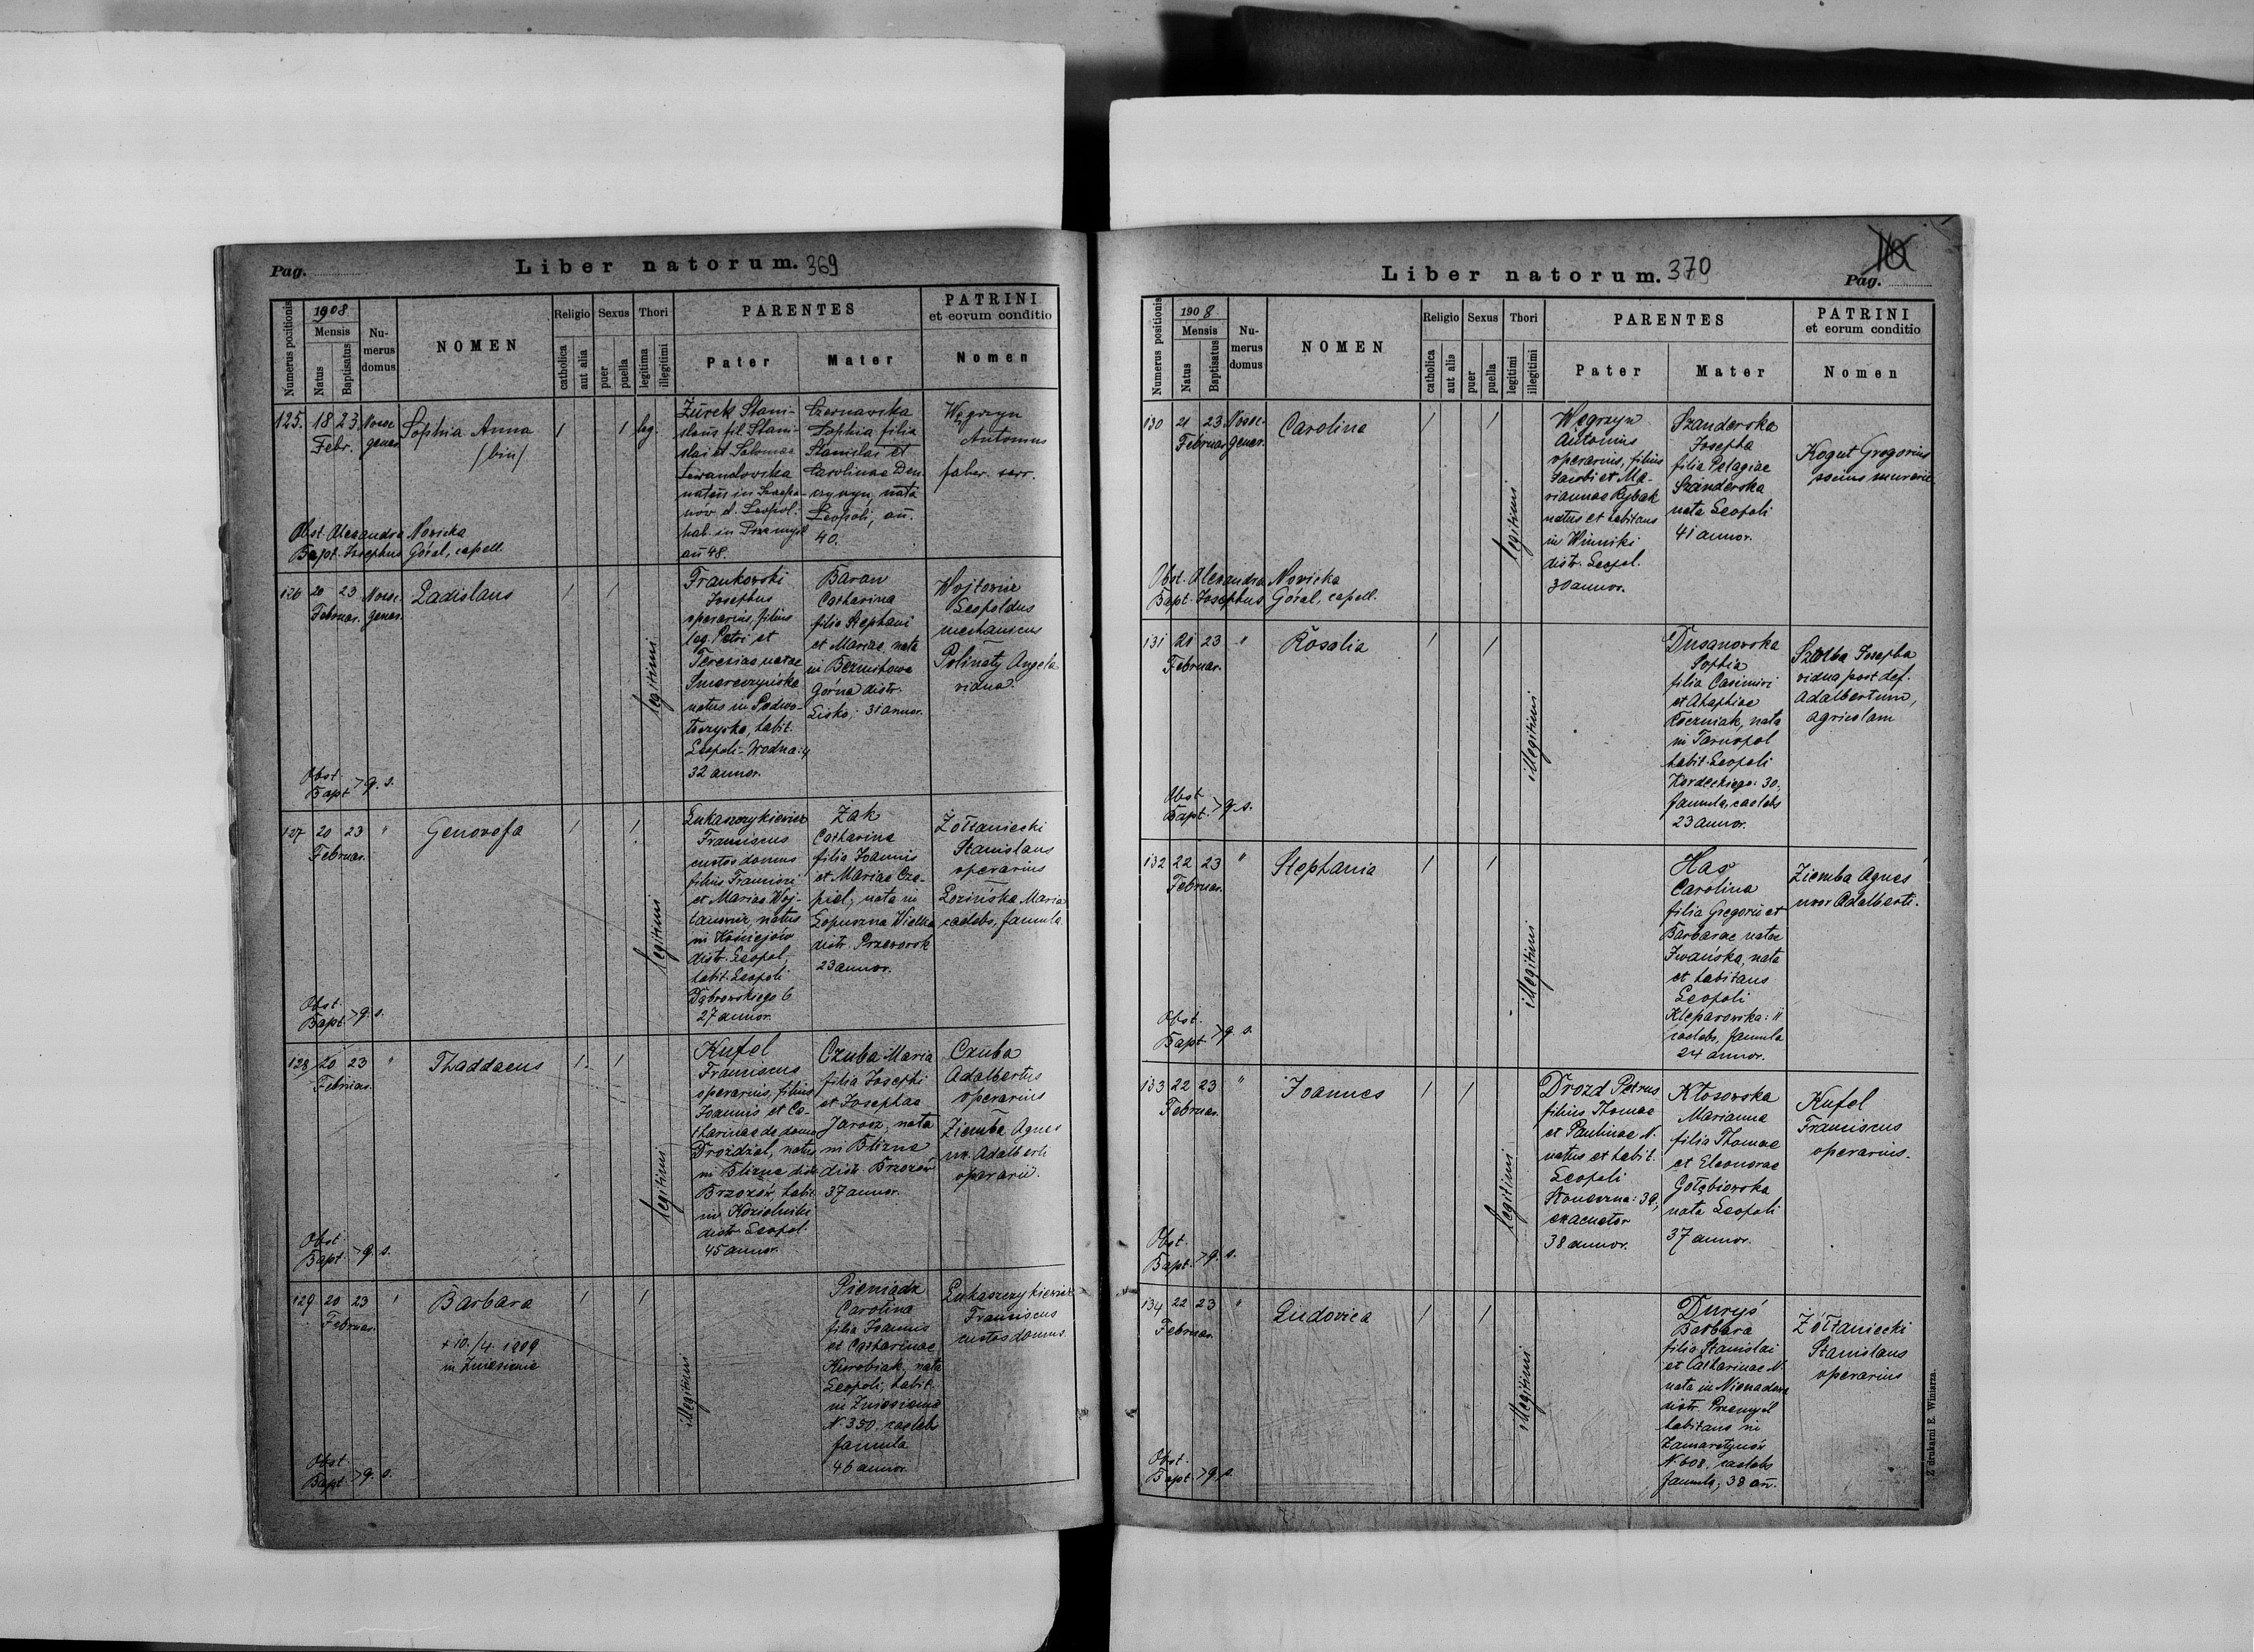 Pag.
Liber natorum. 369
Numerus positionis
1908
Mensis
Natus
Baptisatus
Nu-
merus
domus
NOMEN
Religio
catholica
aut alia
Sexus
puer
puella
Thori
legitima
illegitimi
PARENTES
Pater
Mater
PATRINI
et eorum conditio
Nomen
125. 18 23 Febr.
Sophia Anna
/bin/
1 1 leg.
Żurek Stani-
slaus fil. Stani-
slai et Salomeae
Lewandowska
natus in
hab. in Przemyśl
an 48.
Czernawska
Sophia filia
Stanislai et
Carolinae Den-
czyszyn, nata
Leopoli, an.
40.
Węgrzyn
Antonius
faber. serr.
Obst. Alexandra Nowicka
Bapt. Josephus Góral, capell.
126 20 23
Februar.
Ladislaus
1 1
legitimi
Frankowski
Josephus
operarius, filius
leg. Petri et
Teresiae natae
Smarczyńska
natus in Podwo-
łoczyska, habit.
Leopoli - Wodna: 4
32 annor.
Baran
Catharina
filia Stephani
et Mariae, nata
in Bezmihowa
Górna distr.
Lisko; 31 annor.
Wojtowicz
Leopoldus
mechanicus
Polinaty Angela
vidua.
Obst.
Bapt. > q. s.
127 20 23 "
Februar.
Genovefa
1 1
legitimi
Łukaszczykiewicz
Franciscus
custos domus
filius Francisci
et Mariae Woj-
tanowicz, natus
in Kościejów
distr. Leopol,
habit. Leopoli
Dąbrowskiego 6
27 annor.
Żak
Catharina
filia Joannis
et Mariae Cze-
piel, nata in
Łopuszna Wielka
distr. Przeworsk
23 annor.
Żółtaniecki
Stanislaus
operarius
Łozińska Maria
caelebs, famula
Obst.
Bapt. > q. s.
128 20 23 "
Februar.
Thaddaeus
1 1
legitimi
Kufel
Franciscus
operarius, filius
Joannis et Ca-
tharinae de domo
Drożdżal, natus
in Blizne distr.
Brzozów, habit.
in Kozielniki
distr. Leopol
45 annor.
Czuba Maria
filia Josephi
et Josephae
Jarosz, nata
in Blizne
distr. Brzozów
37 annor.
Czuba
Adalbertus
operarius
Ziemba Agnes
ux. Adalberti
operarii.
Obst.
Bapt. > q. s.
129 20 23 "
Februar.
Barbara
+ 10./4. 1909
in Zniesienie
1 1
illegitimi
Pieniądz
Carolina
filia Joannis
et Catharinae
Kurobiak, nata
Leopoli, habit.
in Zniesienie
N. 350. caelebs
famula
46 annor.
Łukaszczykiewicz
Franciscus
custos domus.
Obst.
Bapt. > q. s.
Liber natorum. 370
Pag.
Numerus positionis
1908
Mensis
Natus
Baptisatus
Nu-
merus
domus
NOMEN
Religio
catholica
aut alia
Sexus
puer
puella
Thori
legitimi
illegitimi
PARENTES
Pater
Mater
PATRINI
et eorum conditio
Nomen
130 21 23
Februar.
Carolina
1 1
legitimi
Węgrzyn
Antonius
operarius, filius
Jacobi et Ma-
riannae Rybak
natus et habitans
in Winniki
distr. Leopol.
30 annor.
Szanderska
Josepha
filia Pelagiae
Szanderska
nata Leopoli
41 annor.
Kogut Gregorius
socius murarii
Obst. Alexandra Nowicka
Bapt. Josephus Góral, capell.
131 21 23 "
Februar.
Rosalia
1 1
illegitimi
Dusanowska
Sophia
filia Casimiri
et Ahaphiae
nata
in Tarnopol
habit. Leopoli
Kordeckiego: 30,
famula, caelebs
23 annor.
Szołba Josepha
vidua post def.
Adalbertum,
agricolam
Obst.
Bapt. > q. s.
132 22 23 "
Februar.
Stephania
1 1
illegitimi
Has
Carolina
filia Gregorii et
Barbarae natae
Iwańska, nata
et habitans
Leopoli
Kleparowska: 11
caelebs, famula
24 annor.
Ziemba Agnes
uxor Adalberti.
Obst.
Bapt. > q. s.
133 22 23 "
Februar.
Joannes
1 1
legitimi
Drozd Petrus
filius Thomae
et Paulinae N.
natus et habit.
Leopoli
Słoneczna: 39,
exacnetor
38 annor.
Kłosowska
Marianna
filia Thomae
et Eleonorae
Gołębiowska
nata Leopoli
37 annor.
Kufel
Franciscus
operarius.
Obst.
Bapt. > q. s.
134 22 23 "
Februar.
Ludovica
1 1
illegitimi
Duryś
Barbara
filia Stanislai
et Catharinae N.
nata in Nienadowa
distr. Przemyśl
habitans in
Zamarstynów
N. 608. caelebs
famula, 38 an.
Żółtaniecki
Stanislaus
operarius
Obst.
Bapt. > q. s.
Z drukarni E. Winiarza.